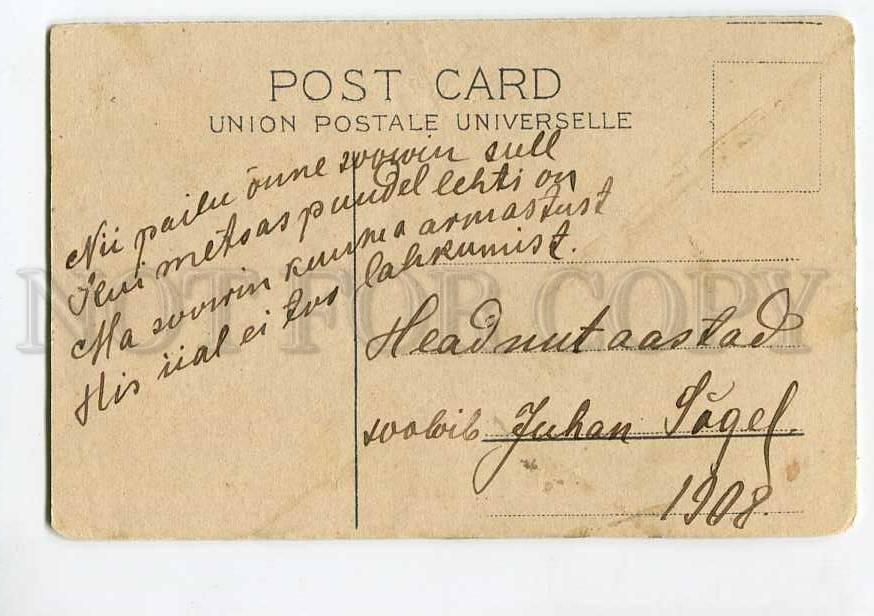 POST CARD
UNION POSTALE UNIVERSELLE
Nii pailu õnne soowin sull
Kui metsas puudel lehti on
Ma soowin kunna armastust
His iial ei too lahkumist.
Head uut aastad
soowib Juhan Sõgel.
1908.
NOT FOR COPY